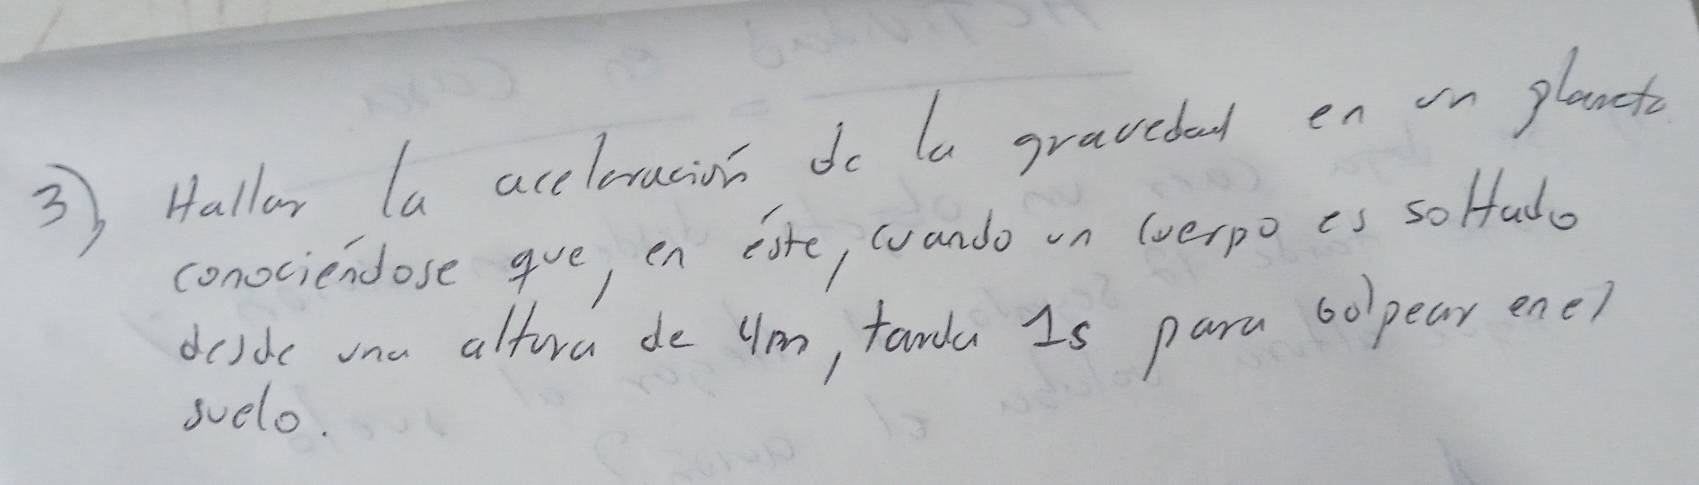 3) Hallar la aceleración de la gravedad en un planeta
conociéndose que, en éste, cuando un cuerpo es soltado
desde una altura de 4m, tarda 1s para golpear en el
suelo.